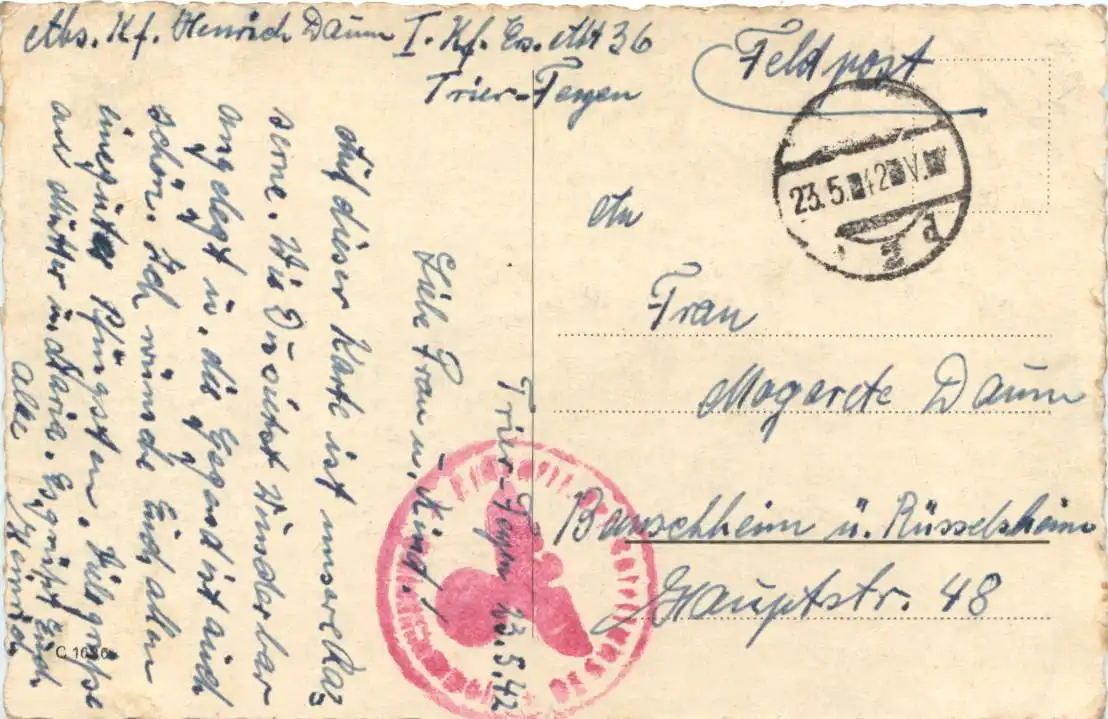 Abs. Kf. Heinrich Daum I. Kf. Ers. Abt 36
Trier-Feyen
Feldpost
23.5.42
An
Frau
Magarete Daum
Bauschheim ü. Rüsselsheim
Hauptstr. 48
Trier-Feyen 23.5.42
Liebe Frau u. Kind!
Auf dieser Karte ist unsere Kaz
serne. Wie Du siehst Wunderbar
angelegt u. die Gegend ist auch
schön. Ich wünsche Euch allen
ein gutes Pfingsten. Viele Grüße
an Mutter und Maria. Es grüßt Euch
alle Heinrich